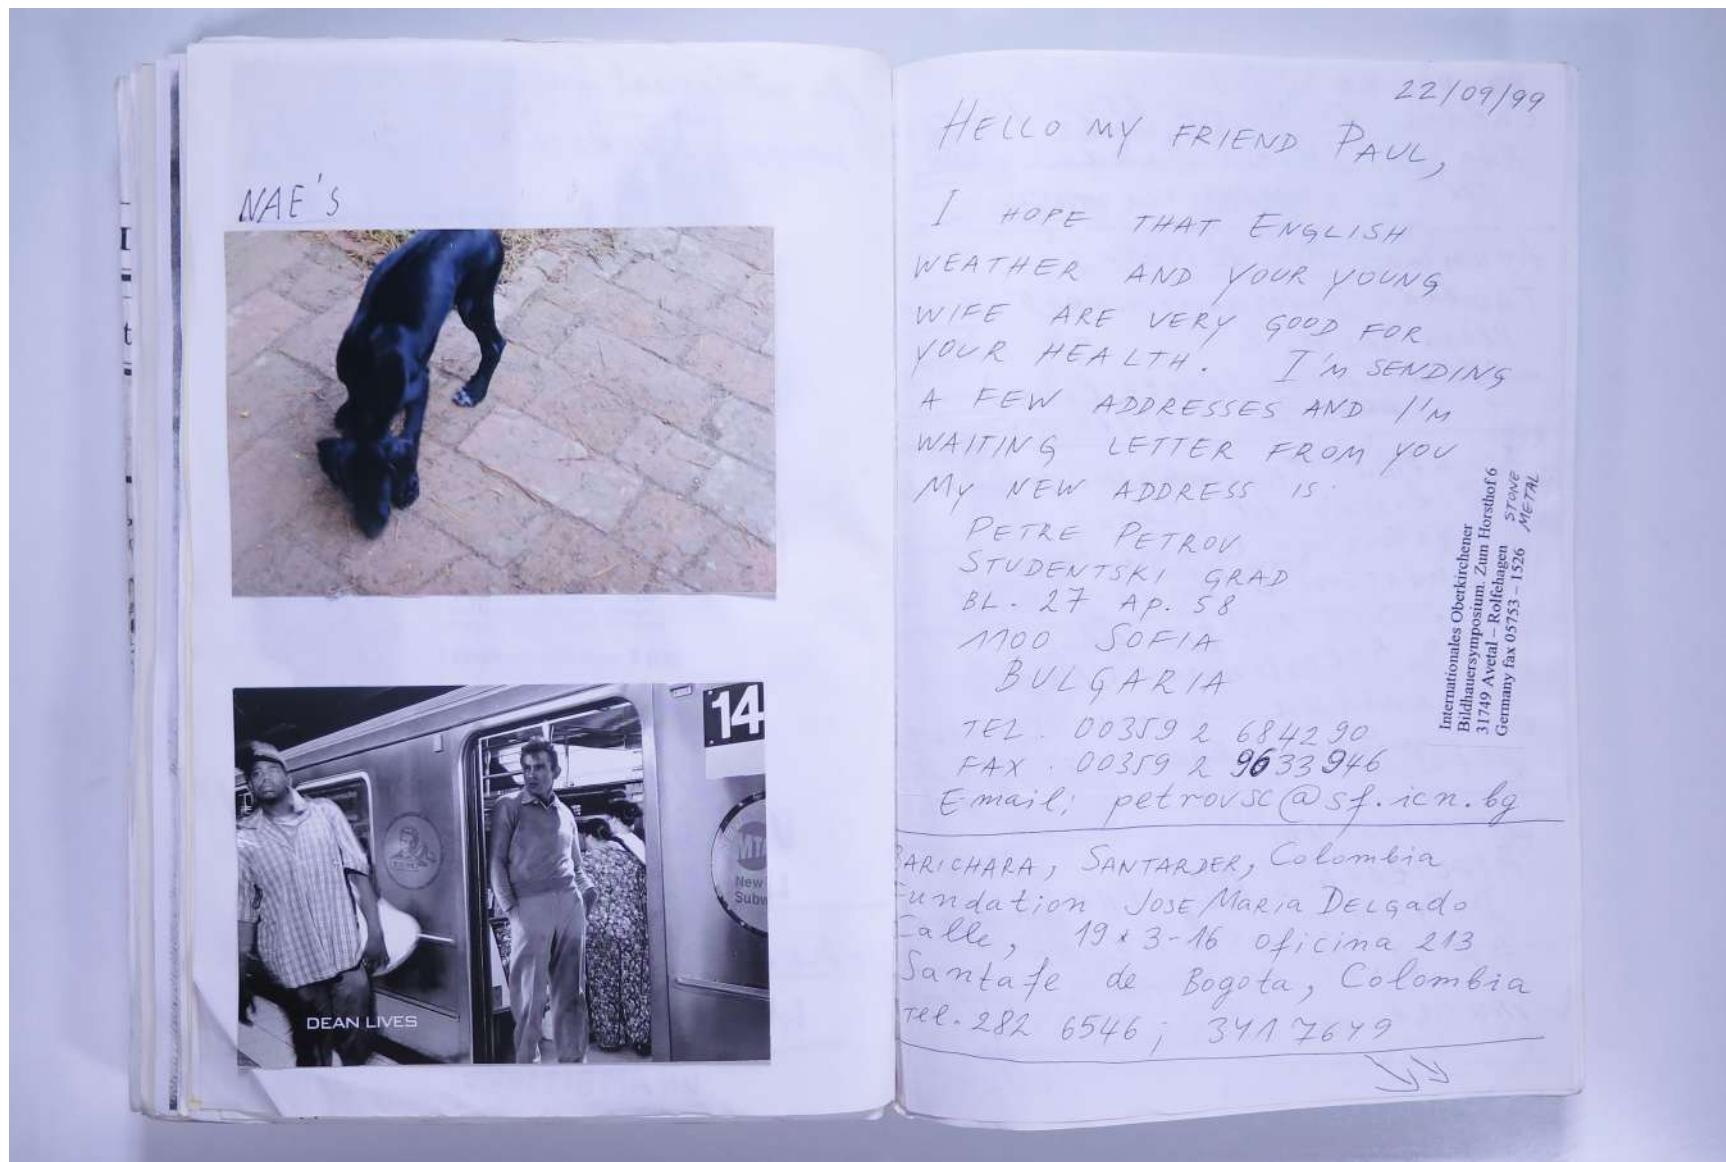 NAE'S
14
MTA
New
Subw
DEAN LIVES
22/09/99
HELLO MY FRIEND PAUL,
I HOPE THAT ENGLISH
WEATHER AND YOUR YOUNG
WIFE ARE VERY GOOD FOR
YOUR HEALTH. I'M SENDING
A FEW ADDRESSES AND I'M
WAITING LETTER FROM YOU
MY NEW ADDRESS IS
PETRE PETROV
STUDENTSKI GRAD
BL. 27 AP. 58
1100 SOFIA
BULGARIA
TEL. 00359 2 684290
FAX. 00359 2 9633946
E-mail: petrovsc@sf.icn.bg
Internationales Oberkirchener
Bildhauersymposium. Zum Horsthof 6
31749 Avetal – Rolfehagen
Germany fax 05753 – 1526
STONE
METAL
BARICHARA, SANTARDER, Colombia
Fundation JOSE MARIA DELGADO
Calle, 19 x 3-16 oficina 213
Santafe de Bogota, Colombia
Tel. 282 6546; 3417649